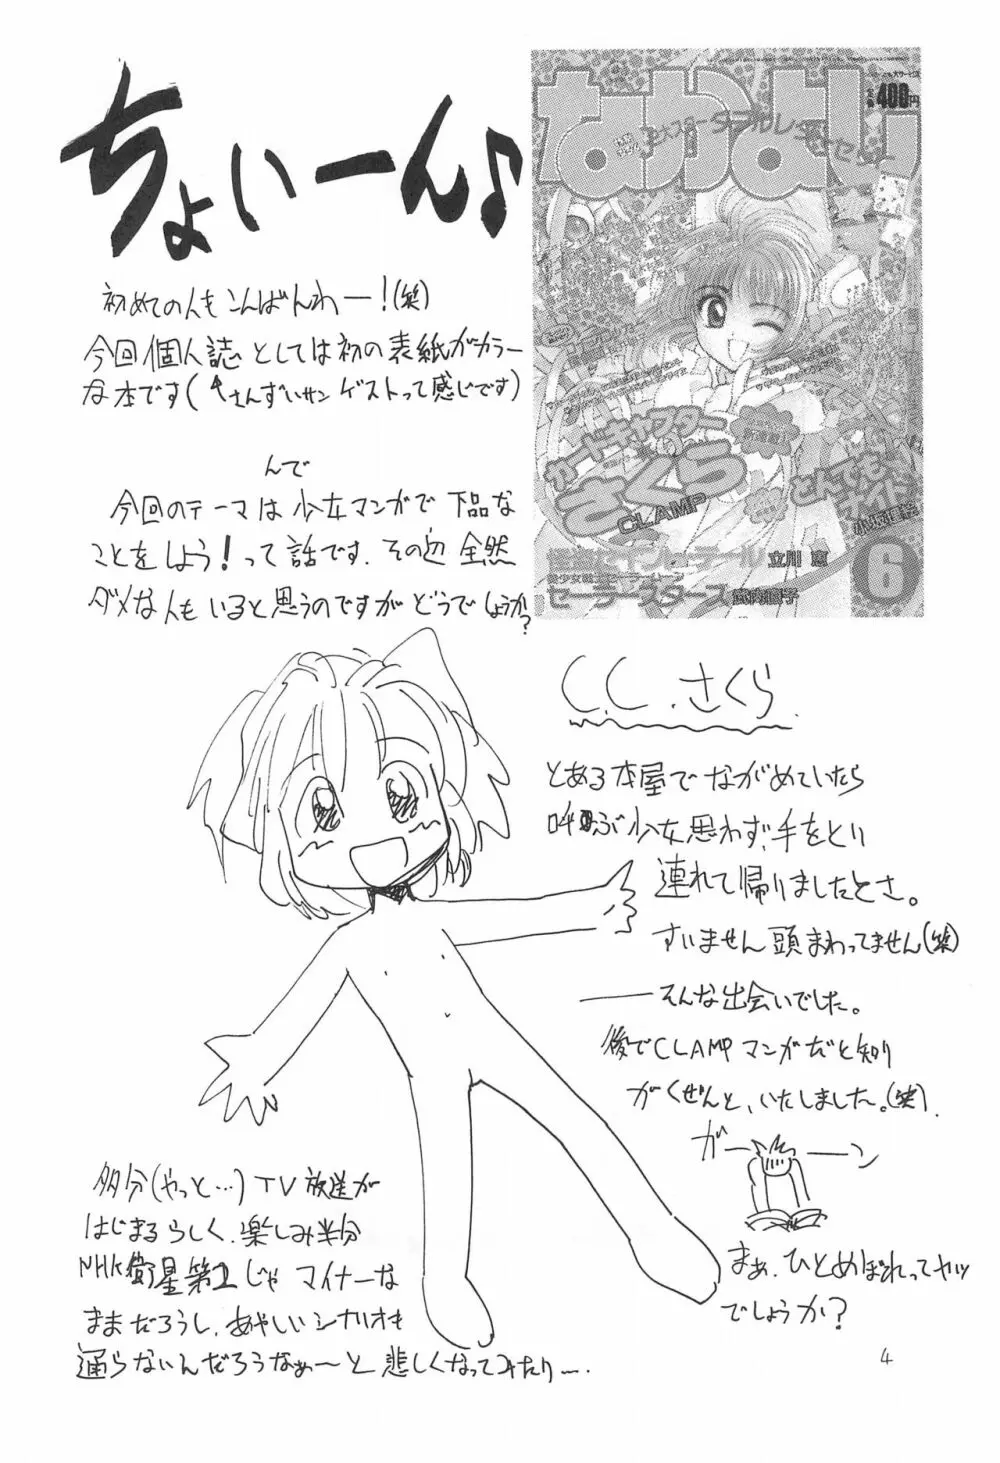 ちょいーん♪
初めての人もこんばんわー！(笑)
今回個人誌としては初の表紙がカラー
な本です(さんずいサン ゲストって感じです)
んで
今回のテーマは少女マンガで下品な
ことをしよう！って話です。その辺全然
ダメな人もいると思うのですがどうでしょうか？
なかよし
400円
カードキャプター
さくら
CLAMP
新連載！
とんでもナイト
怪盗セイント・テール 立川恵
美少女戦士セーラームーン
セーラースターズ 武内直子
6
C.C.さくら.
とある本屋でながめていたら
呼ぶ少女思わず、手をとり
連れて帰りましたとさ。
すいません頭まわってません(笑)
――そんな出会いでした。
後でCLAMPマンガだと知り
がくぜんと、いたしました。(笑).
ガーーン
まぁ、ひとめぼれってヤツ
でしょうか？
多分(やっと…)TV放送が
はじまるらしく、楽しみ半分
NHK衛星第2じゃマイナーな
ままだろうし、あやしいシナリオも
通らないんだろうなぁ〜と悲しくなってみたり〜.
4